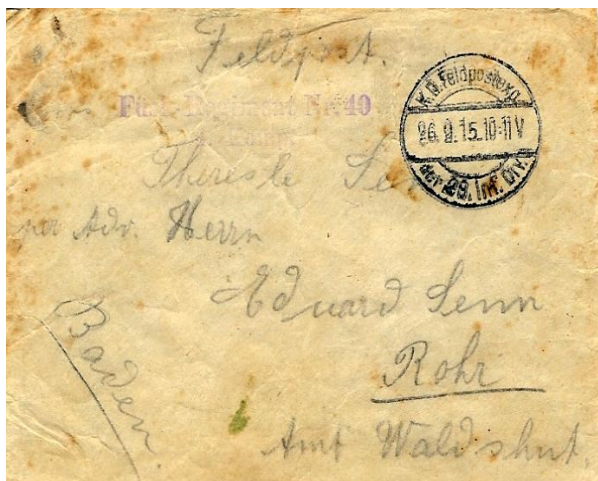 Feldpost.
Füs. Regiment Nr. 40
K.D. Feldpostexp.
26.9.15.10-11V
der 29. Inf. Div.
Theresle Senn
per Adr. Herrn
Eduard Senn
Rohr
Amt Waldshut.
Baden